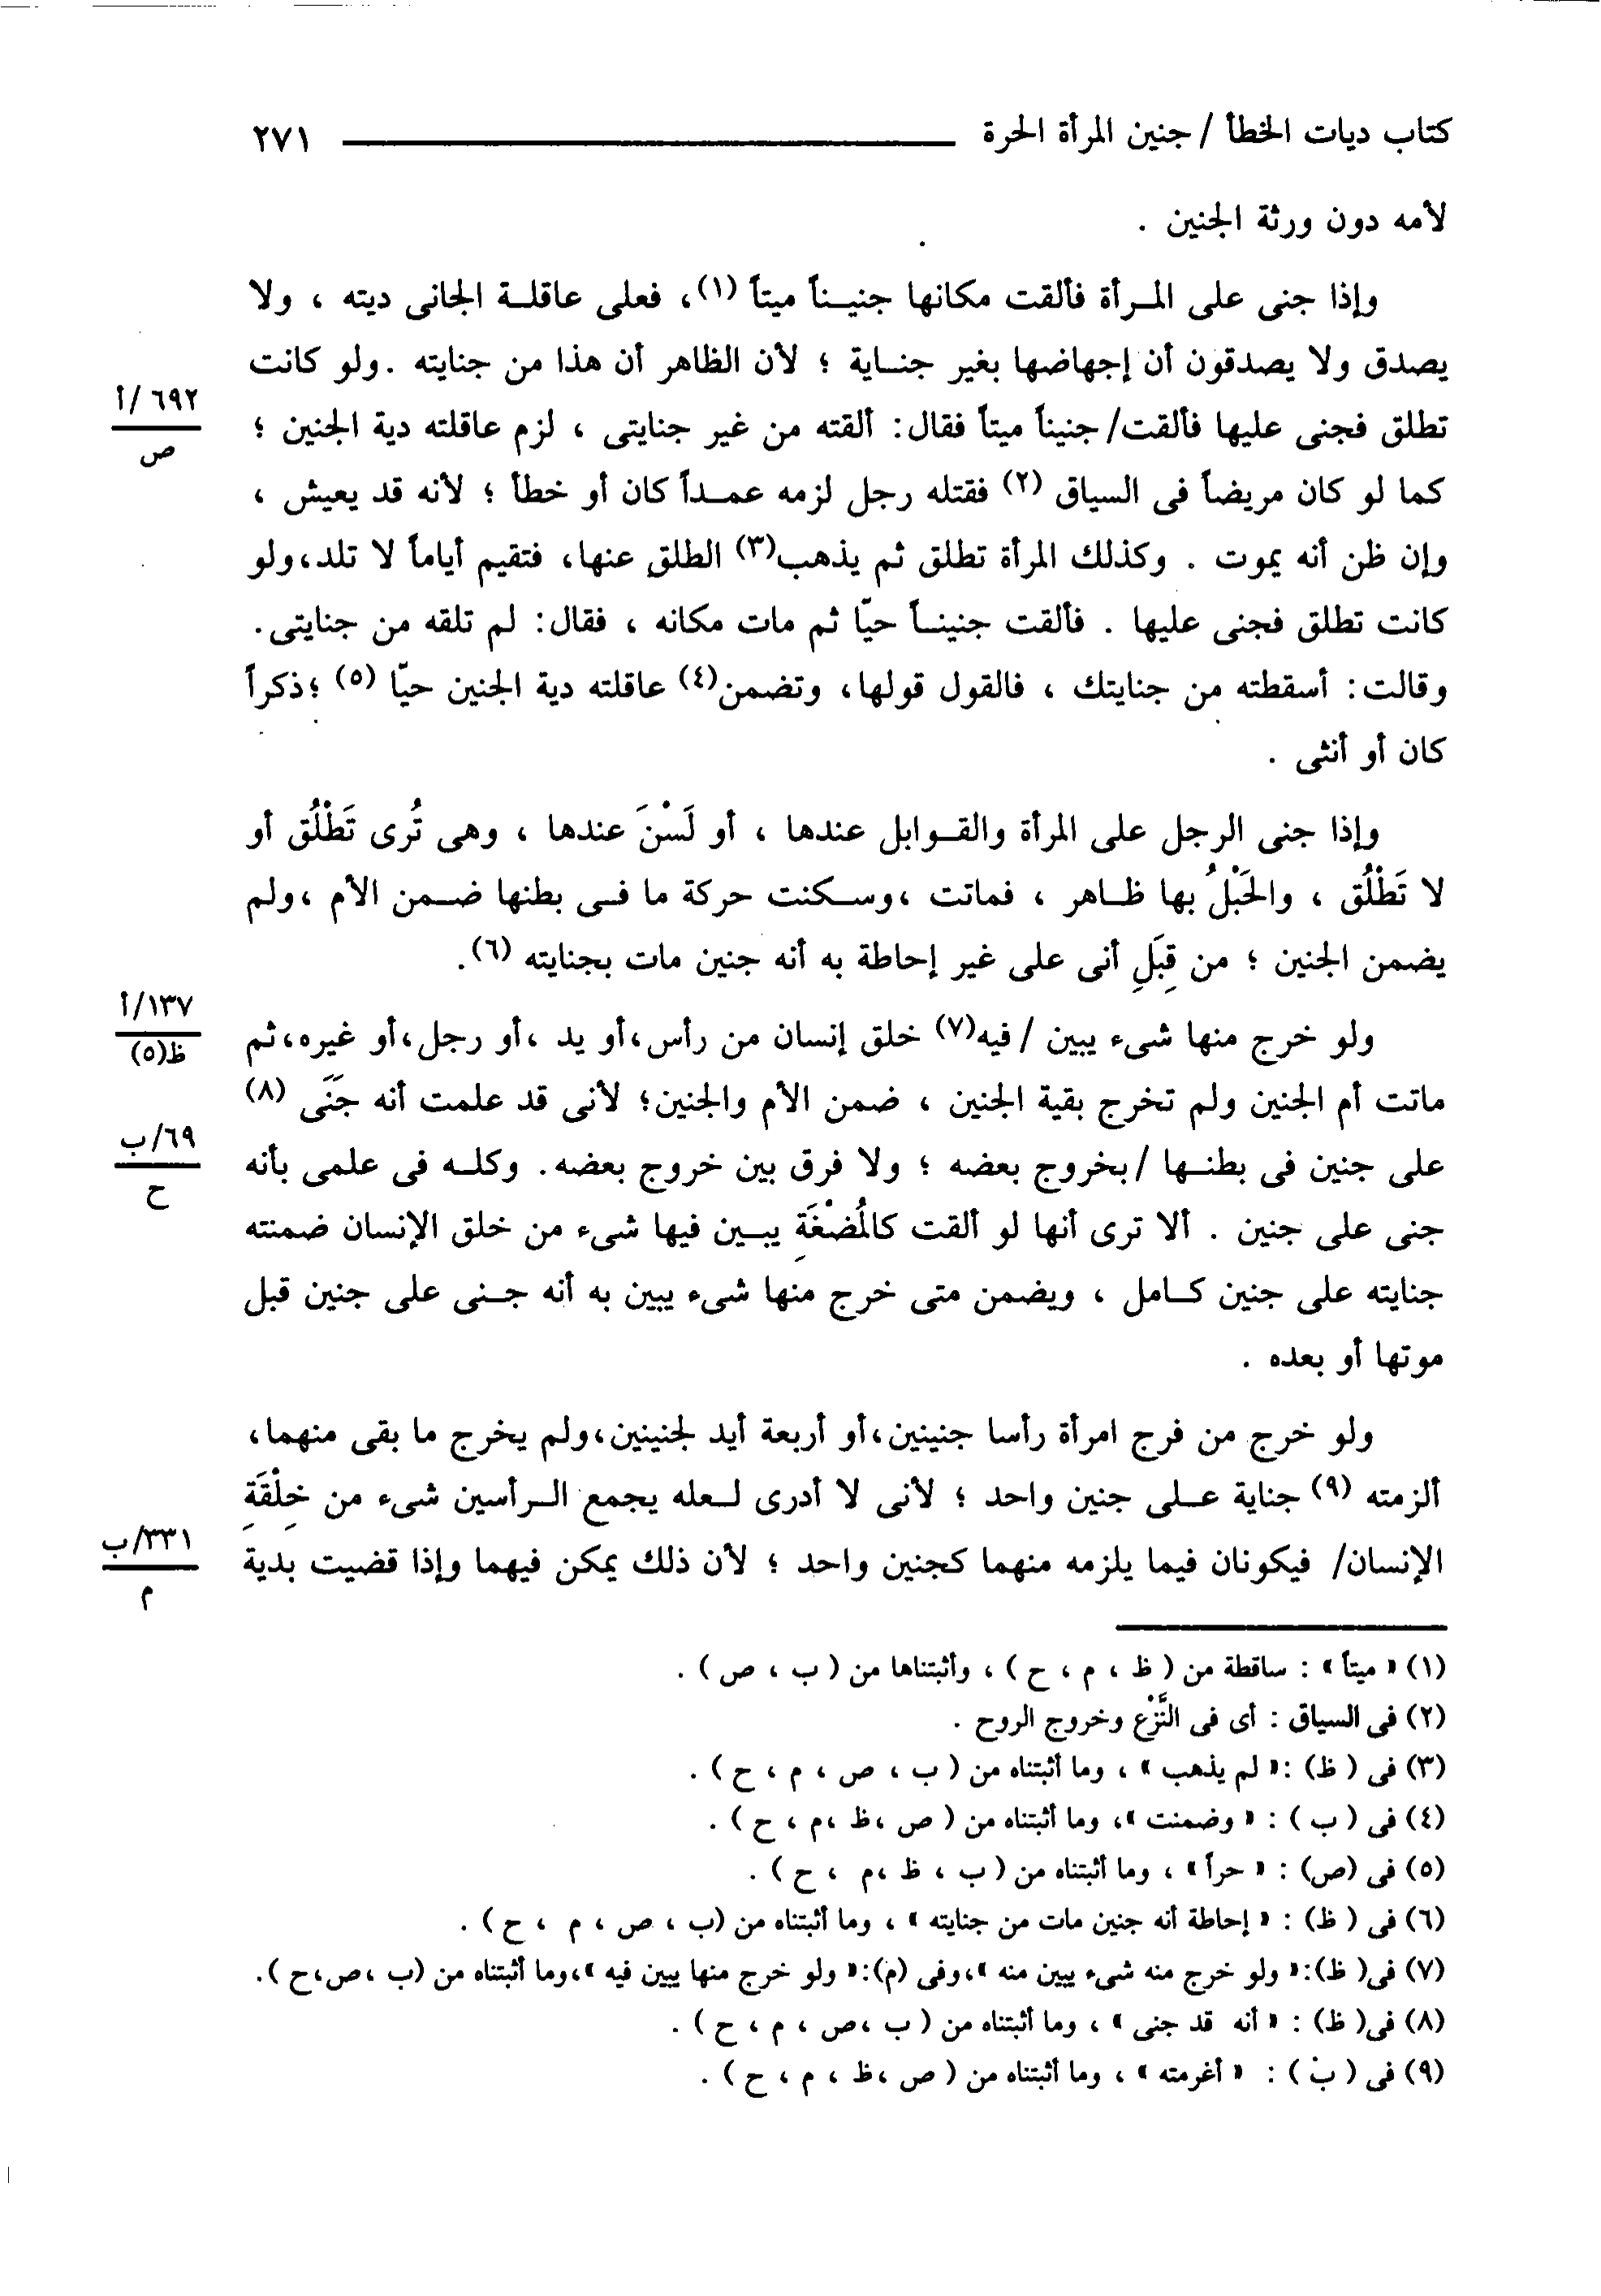 كتاب ديات الخطأ / جنين المرأة الحرة ٢٧١
لأمه دون ورثة الجنين .
وإذا جنى على المـرأة فألقت مكانها جنيـناً ميتاً (١)، فعلى عاقلـة الجانى ديته ، ولا
يصدق ولا يصدقون أن إجهاضها بغير جنـاية ؛ لأن الظاهر أن هذا من جنايته .ولو كانت
٦٩٢/أ
تطلق فجنى عليها فألقت/جنيناً ميتاً فقال: ألقته من غير جنايتى ، لزم عاقلته دية الجنين ؛
ص
كما لو كان مريضاً فى السياق (٢) فقتله رجل لزمه عمـداً كان أو خطأ ؛ لأنه قد يعيش ،
وإن ظن أنه يموت . وكذلك المرأة تطلق ثم يذهب(٣) الطلق عنها، فتقيم أياماً لا تلد،ولو
كانت تطلق فجنى عليها . فألقت جنينـاً حيّا ثم مات مكانه ، فقال: لم تلقه من جنايتى.
وقالت: أسقطته من جنايتك ، فالقول قولها، وتضمن(٤) عاقلته دية الجنين حيّا (٥) ؛ذكراً
كان أو أنثى .
وإذا جنى الرجل على المرأة والقـوابل عندها ، أو لَسْنَ عندها ، وهى تُرى تَطْلُق أو
لا تَطْلُق ، والحَبْلُ بها ظـاهر ، فماتت ،وسـكنت حركة ما فـى بطنها ضـمن الأم ،ولم
يضمن الجنين ؛ من قِبَلِ أنى على غير إحاطة به أنه جنين مات بجنايته (٦).
١٣٧/أ
ظ(٥)
ولو خرج منها شىء يبين /فيه(٧) خلق إنسان من رأس،أو يد ،أو رجل،أو غيره،ثم
ماتت أم الجنين ولم تخرج بقية الجنين ، ضمن الأم والجنين؛ لأنى قد علمت أنه جَنَى (٨)
٦٩/ب
ح
على جنين فى بطنـها /بخروج بعضه ؛ ولا فرق بين خروج بعضه. وكلـه فى علمى بأنه
جنى على جنين . ألا ترى أنها لو ألقت كالمُضْغَةِ يبـين فيها شىء من خلق الإنسان ضمنته
جنايته على جنين كـامل ، ويضمن متى خرج منها شىء يبين به أنه جـنى على جنين قبل
موتها أو بعده .
ولو خرج من فرج امرأة رأسا جنينين،أو أربعة أيد لجنينين،ولم يخرج ما بقى منهما،
ألزمته (٩) جناية عـلى جنين واحد ؛ لأنى لا أدرى لـعله يجمع الـرأسين شىء من خِلْقَةِ
٣٣١/ب
م
الإنسان/ فيكونان فيما يلزمه منهما كجنين واحد ؛ لأن ذلك يمكن فيهما وإذا قضيت بدية
(١) « ميتاً » : ساقطة من ( ظ ، م ، ح ) ، وأثبتناها من ( ب ، ص ) .
(٢) فى السياق : أى فى النَّزْع وخروج الروح .
(٣) فى ( ظ) :« لم يذهب » ، وما أثبتناه من ( ب ، ص ، م ، ح ) .
(٤) فى ( ب ) : « وضمنت »، وما أثبتناه من ( ص ،ظ ،م ، ح ) .
(٥) فى (ص) : « حراً» ، وما أثبتناه من ( ب ، ظ ،م ، ح ) .
(٦) فى ( ظ) : « إحاطة أنه جنين مات من جنايته » ، وما أثبتناه من (ب ، ص ، م ، ح ) .
(٧) فى( ظ):« ولو خرج منه شىء يبين منه »،وفى (م):« ولو خرج منها يبين فيه »،وما أثبتناه من (ب ،ص،ح ).
(٨) فى( ظ) : « أنه قد جنى » ، وما أثبتناه من ( ب ،ص ، م ، ح ) .
(٩) فى ( ب ) : « أغرمته » ، وما أثبتناه من ( ص ،ظ ، م ، ح ) .